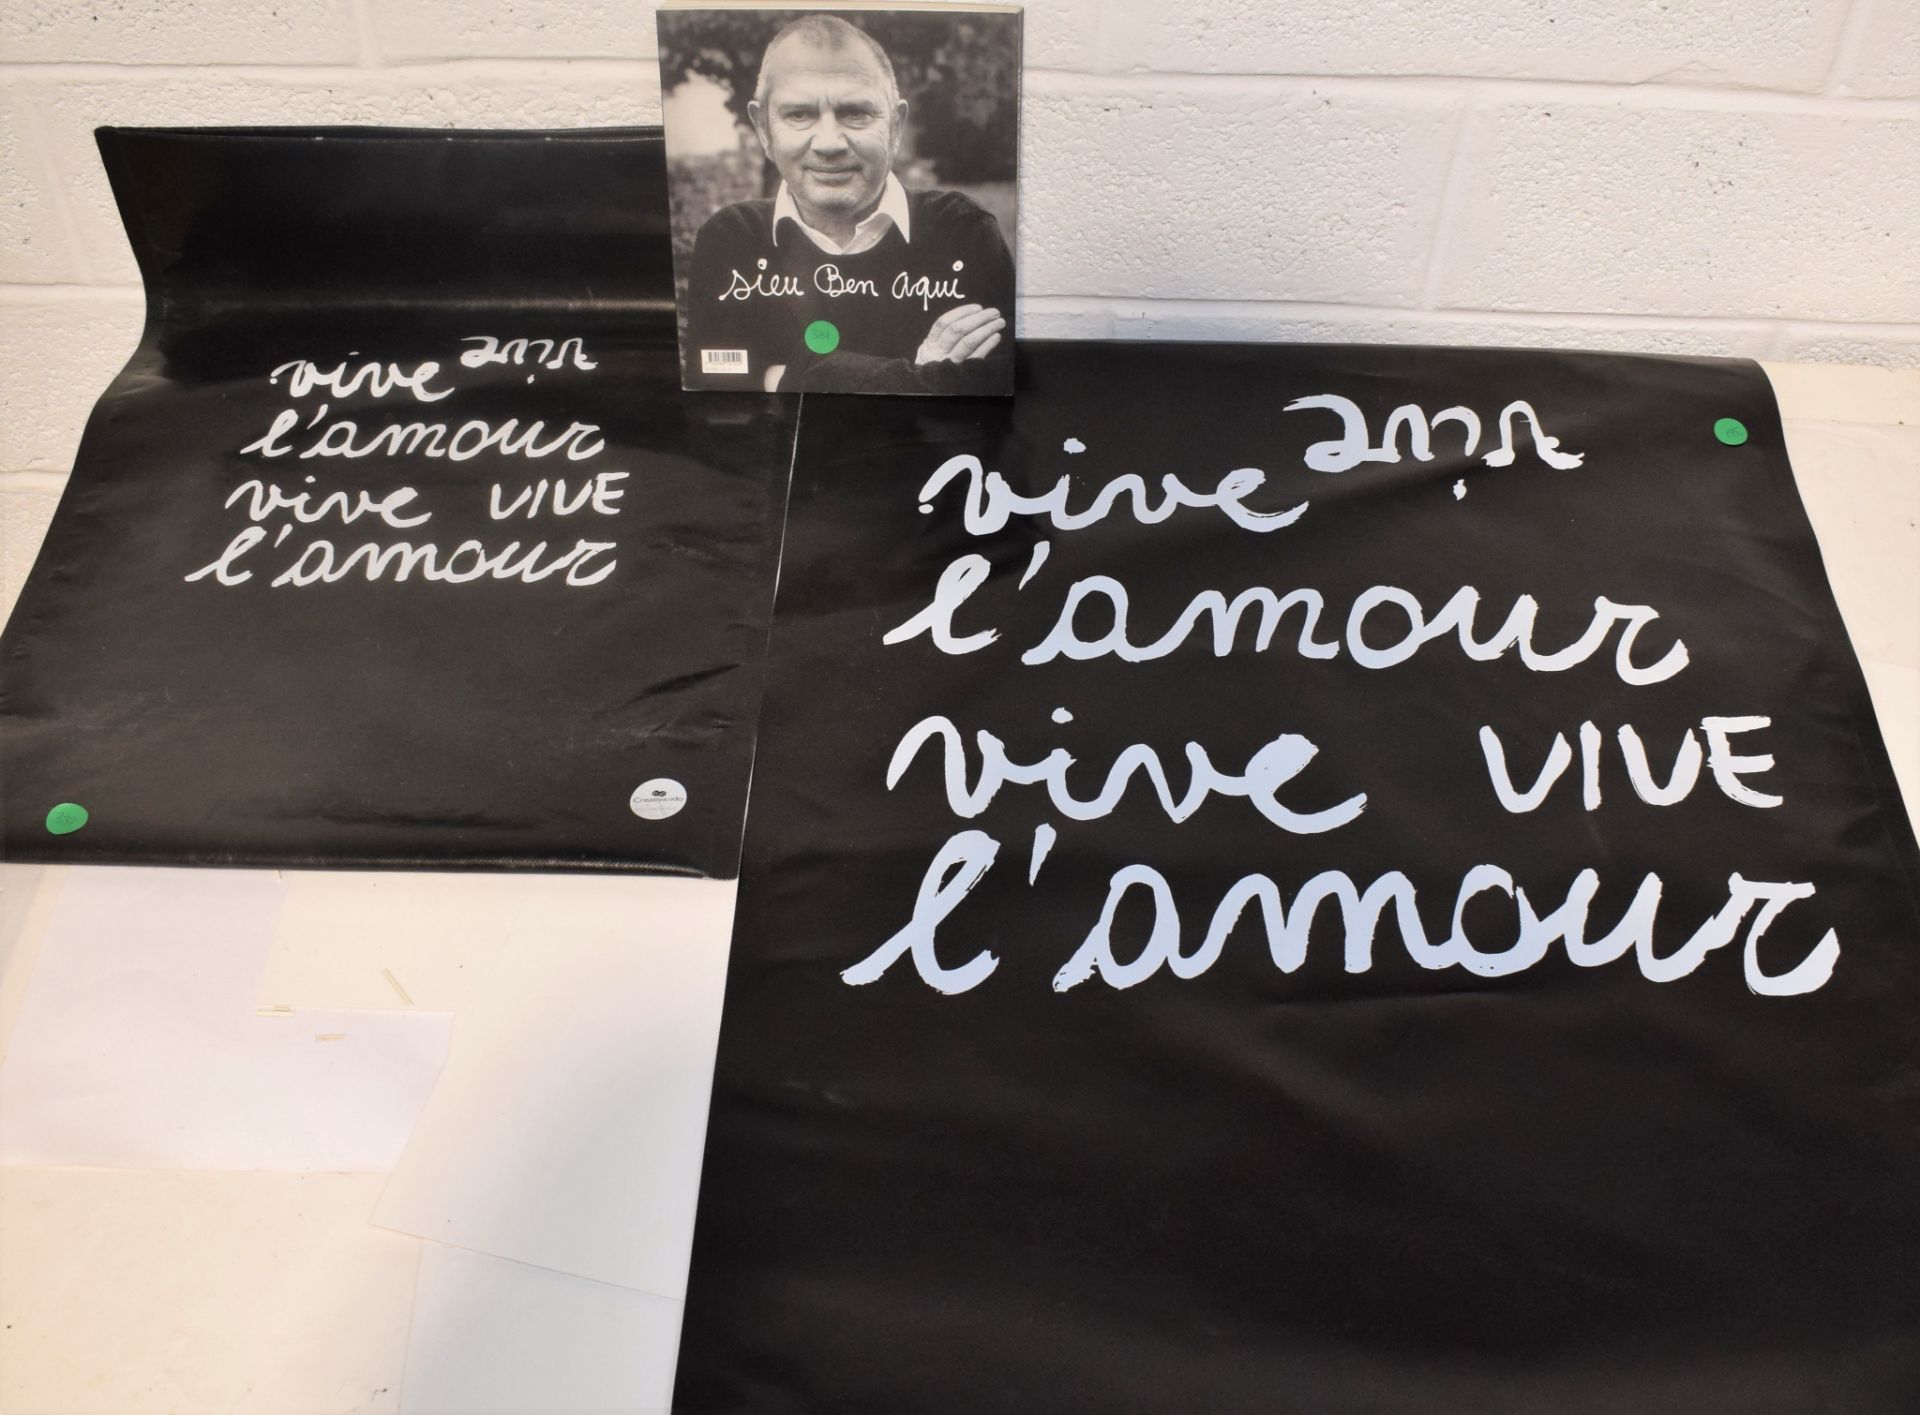 sieu Ben aqui
331
vive vive
l'amour
vive VIVE
l'amour
331
Creativando
vive vive
l'amour
vive VIVE
l'amour